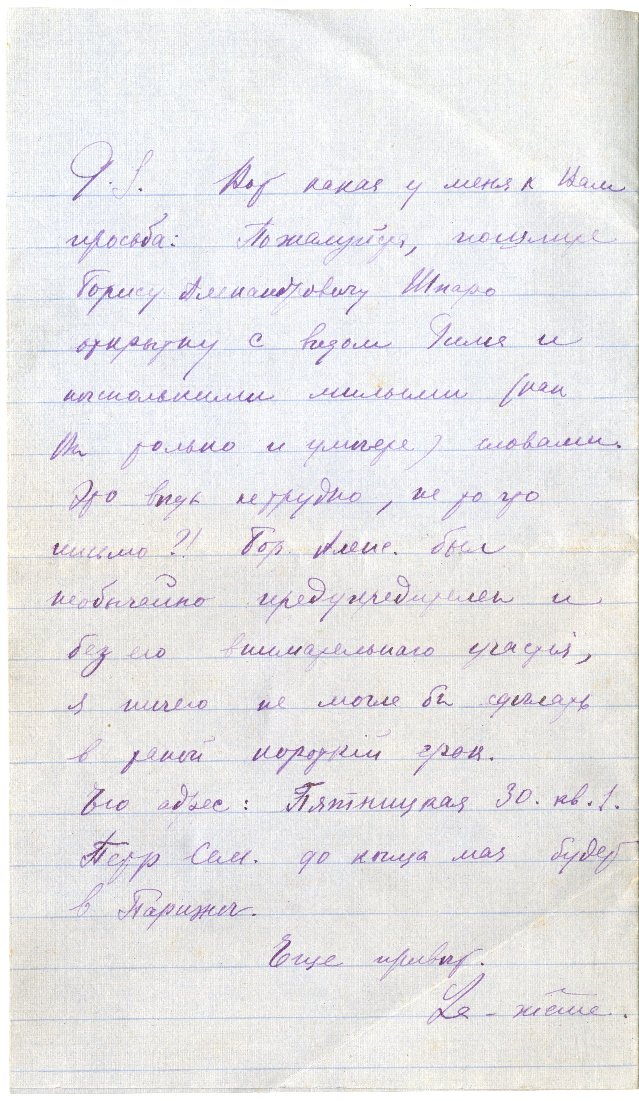 P.S. Вот какая у меня к Вам
просьба: Пожалуйста, пошлите
Борису Александровичу Шпаро
открытку с видом Рима и
нѣсколькими милыми (как
Вы только и умѣете) словами.
Это вѣдь не трудно, не то что
письмо?! Бор. Алекс. был
необычайно предупредителен и
без его внимательнаго участія,
я ничего не могла бы сдѣлать
в такой короткій срок.
Его адрес: Пятницкая 30. кв. 1.
Петр Сем. до конца мая будет
в Парижѣ.
Еще привѣт.
La - même.